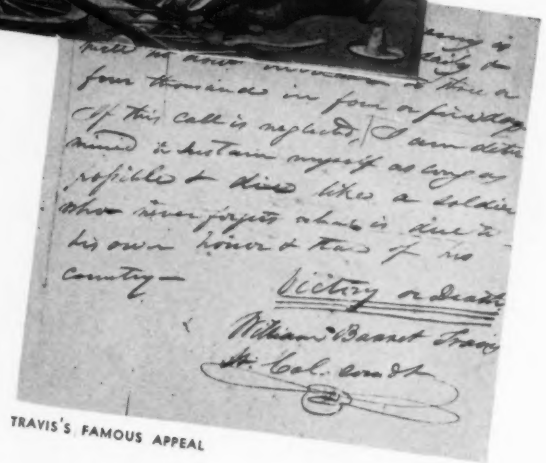 enemy is
daily &
will no doubt increase to three or
four thousand in four or five days
If this call is neglected, I am deter
mined to sustain myself as long as
possible & die like a soldier
who never forgets what is due to
his own honor & that of his
country—
Victory or Death
William Barret Travis
Lt. Col. comdt
TRAVIS'S FAMOUS APPEAL